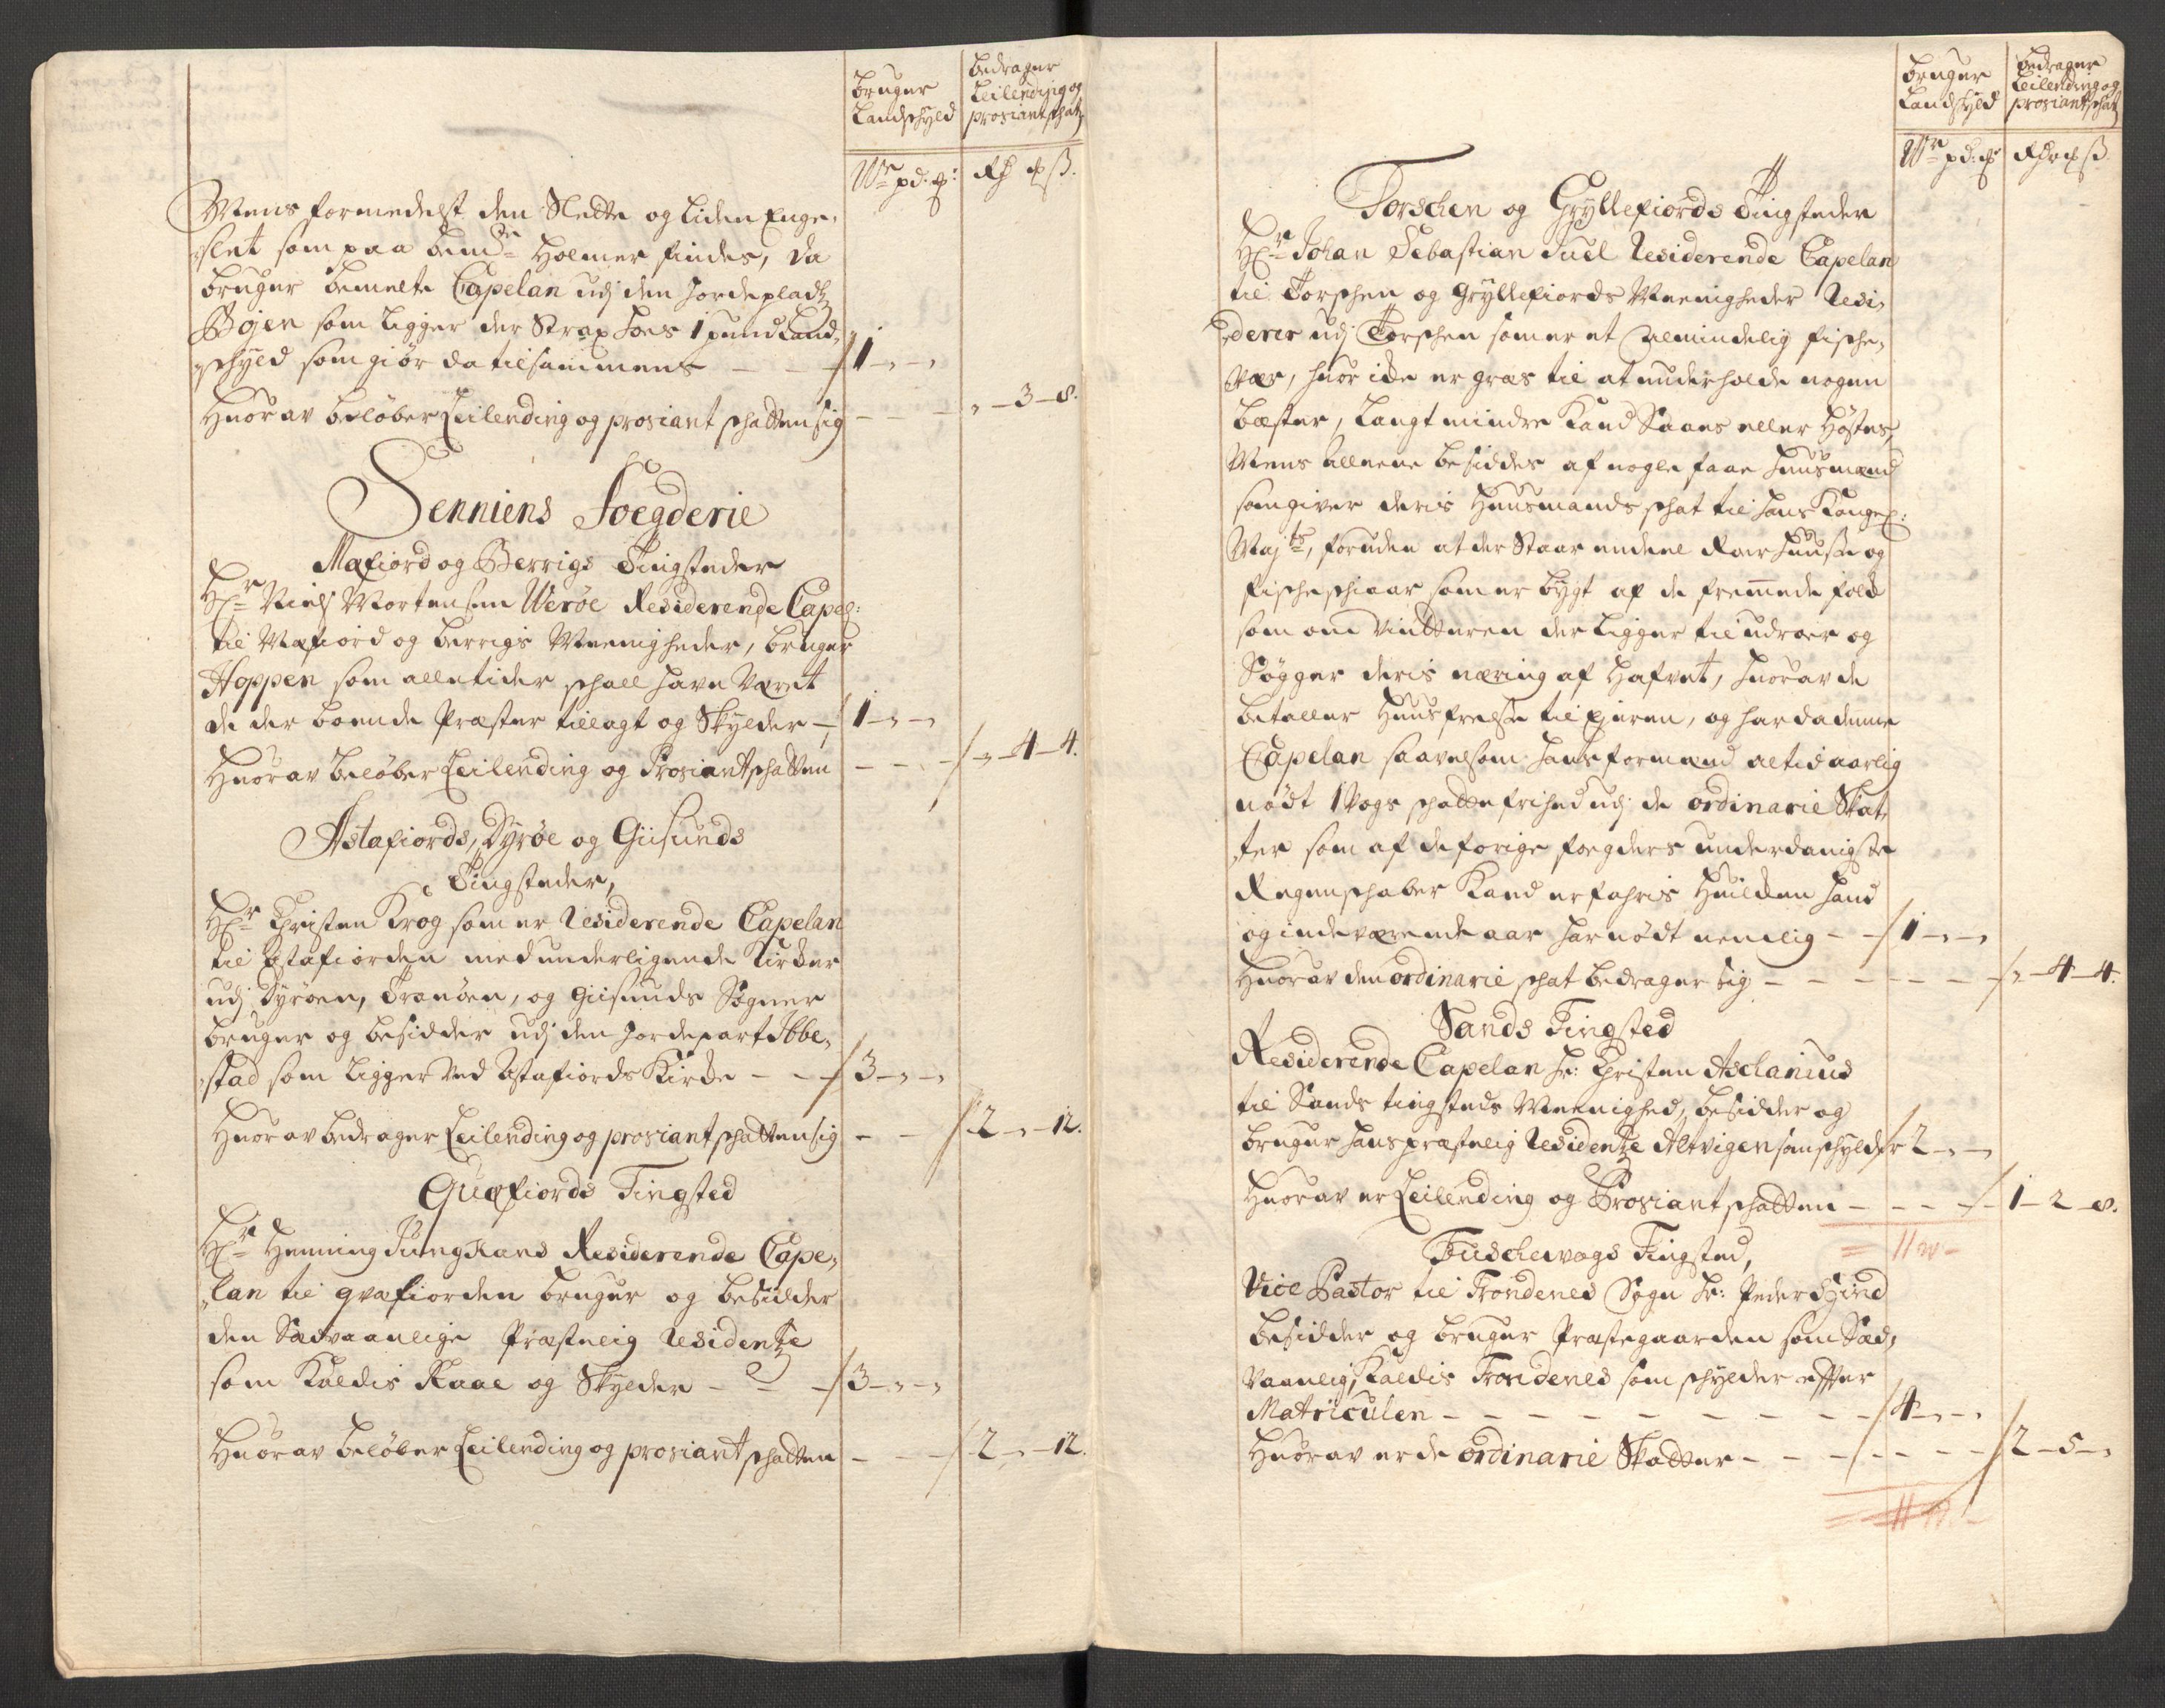 Bruger
Landschyld
Bedrager
Leilending og
prosiantschatz
Wr pd: :
Rd  ß.
Mens formedelst den Slette og liden Enge,
slet som paa bemte Holmer findes, da
bruger bemelte Capelan udj den Jordepladtz
Bøjen som ligger der Strax hoes 1 pund Land,
schyld som giør da tilsammens - - 1 - -
Huor av beløber Leilending og prosiant schatten sig - - - 3 - 8.
Senniens Foegderie
Mafiord og Berrigs Tingsteder
Hr Niels Mortensen Werøe Residerende Capel:
til Mafiord og Berrigs Meenigheder, bruger
Hoppen som alletider schall have været
de der boende Præster tillagt og Skylder - 1 - -
Huor av beløber Leilending og Prosiantschatten - - - 4 - 4.
Astafiords, Dyrøe og Giisunds
Tingsteder,
Hr Christen Krog som er Residerende Capelan
til Astafiorden med underligende Kircker
udj Dyrøen, Tranøen, og Giisunds Sogner
bruger og besidder udj den Jordepart Ibbe,
stad som ligger ved Astafiords Kircke - - 3 - -
Huor av bedrager Leilending og prosiantschatten sig - - 2 - 12.
Quæfiords Tingsted
Hr Henning Junghans Residerende Cape,
lan til Qvæfiorden bruger og besidder
den Sædvaanlige Præstelig Residentze
som Kaldis Raae og Skylder - - 3 - -
Huor av beløber Leilending og prosiantschatten - - 2 - 12.
Bruger
Landschyld
Bedrager
Leilending og
prosiantschatz
Wr pd: 
Rd  ß.
Torschen og Gryllefiords Tingsteder
Hr Johan Sebastian Juel Residerende Capelan
til Torschen og Gryllefiords Meenigheder Resi,
derer udj Torschen som er et almindelig fische,
vær, huor icke er græs til at underholde nogen
bæster, langt mindre Kand Saaes eller Høstes,
Mens alleene besiddes af nogle faae Huusmænd
som giver deris Huusmandsschat til Hans Kongel:
Majts, foruden at der Staar endeel Roer Huuse og
fischeschiaar som er bygt af de fremmede folck
som om Vintteren der ligger til udroer og
Søgger deris næring af Hafvet, huorav de
betaller Huusfrelse til Ejeren, og har da denne
Capelan saavelsom hans formænd altid aarlig
nødt 1 Vogs schattefrihed udj de ordinarie Skat,
ter som af de forige foegders underdanigste
Regenschaber Kand erfahris Huilcken hand
og indeværende aar har nødt nemlig - - 1 - -
Huor av den ordinarie schat bedrager sig - - - - - 4 - 4.
Sands Tingsted
Residerende Capelan Hr: Christen Asclanius
til Sands tingsteds Meenighed, besidder og
bruger hans præstelig Residentze Altvigen som schylder 2 - -
Huor av er Leilending og Prosiantschatten - - - 1 - 2 - 8.
= 11 w -
Fuschevogs Tingsted,
Vice Pastor til Trondenes Sogn Hr: Peder Hind
besidder og bruger Præstegaarden som Sæd,
vaanlig, Kaldis Trondenes som schylder efter
Matriculen - - - - - - - - 4 - -
Huor av er de ordinarie Skatter - - - - - - 2 - 5 -